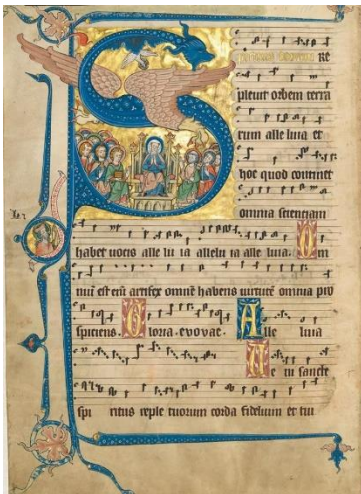 S RE
pleuit orbem terra
rum alle luia et
hoc quod continet
omnia scienciam
habet uocis alle lu ia allelu ia alle luia. Om
niū est eni artifex omnē habens uirtutē omnia pro
spiciens Gloria. evovae. Alle luia
Ve ni sancte
spi ritus reple tuorum corda fidelium et tui